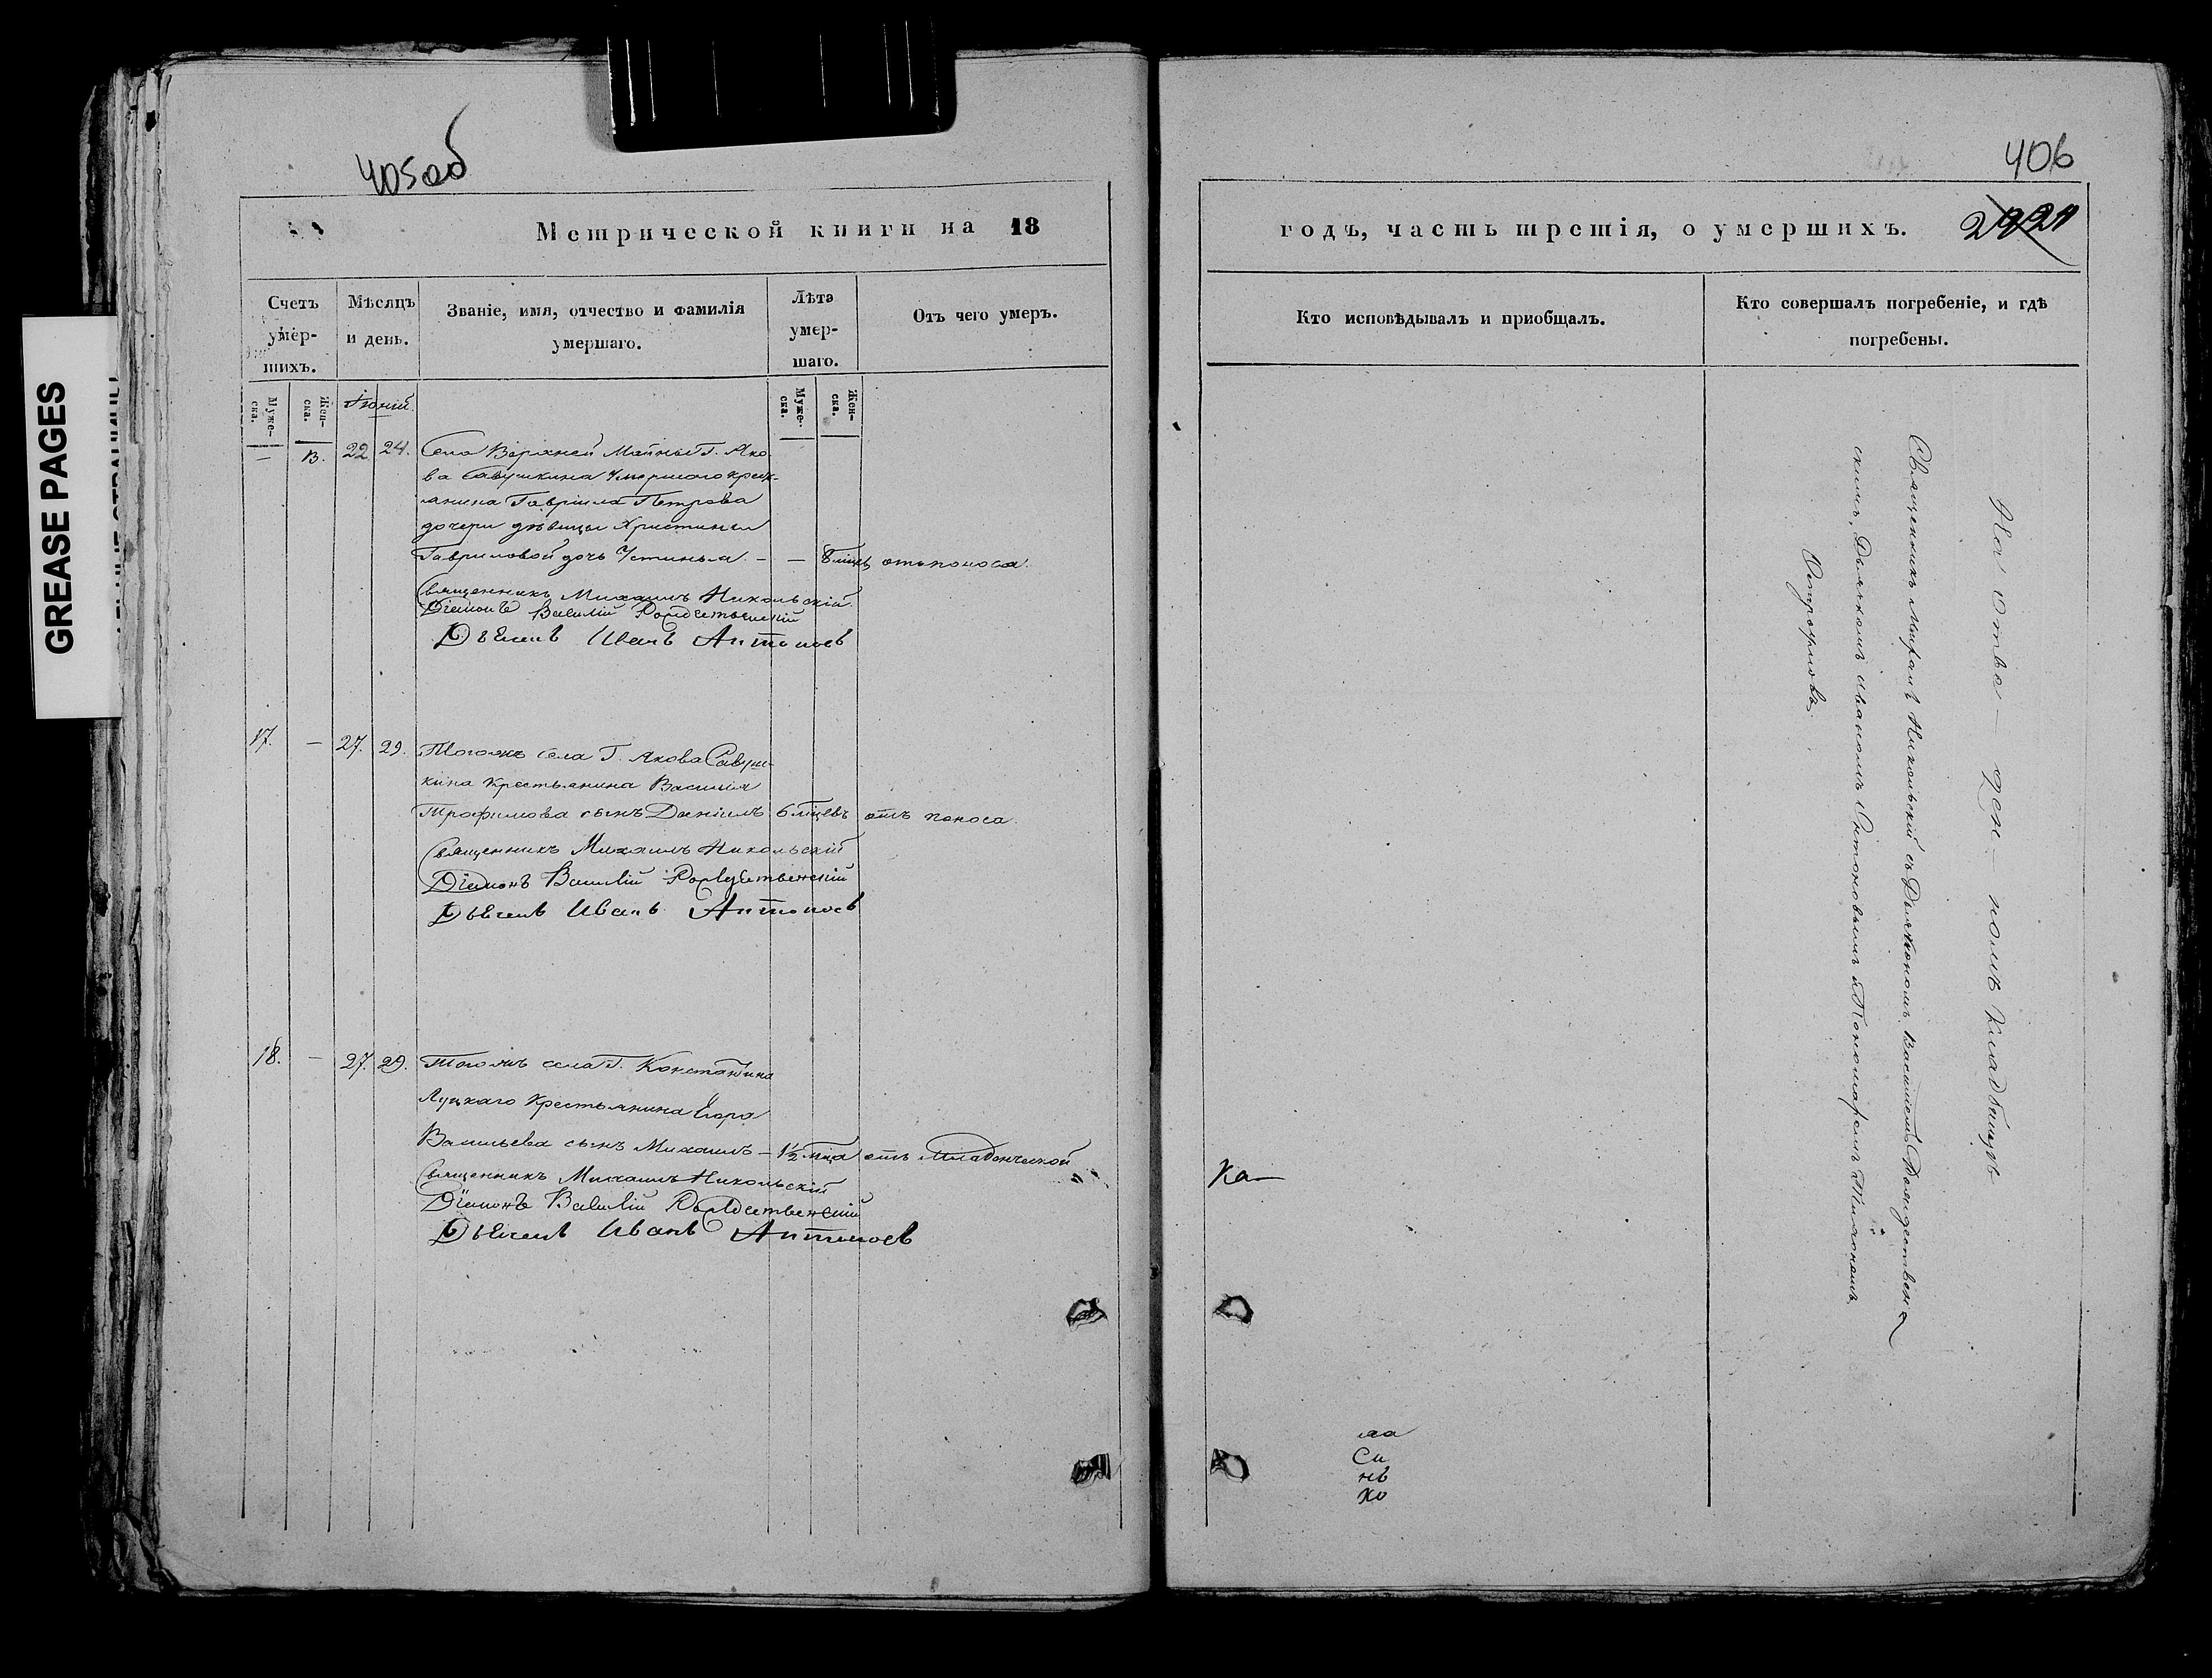 405об
Метрической книги на 18
Счетъ умер-шихъ.
Мѣсяцъ и день.
Званіе, имя, отчество и фамилія умершаго.
Лѣта умер-шаго.
Отъ чего умеръ.
Муже-ска.
Жен-ска.
Іюній.
Муже-ска.
Жен-ска.
— 13. 22. 24. Села Верхней Майны Г. Яко
ва Савушкина Умершаго крест-
янина Гавріила Петрова
дочери дѣвицы Христиньи
Гавриловой дочь Устинья. — — 8 мцъ отъ поноса.
Священникъ Михаилъ Никольскій.
Діаконъ Василій Рождественскій
Дьячекъ Иванъ Антоновъ
17. — 27. 29. Тогожъ села Г. Якова Савуш-
кина Крестьянина Василія
Трофимова сынъ Даніилъ 6 мцевъ отъ поноса.
Священникъ Михаилъ Никольскій
Діаконъ Василій Рождественскій
Дьячекъ Иванъ Антоновъ
18. — 27. 29. Тогожъ села Г. Константина
Луцкаго Крестьянина Егора
Васильева сынъ Михаилъ — 1½ мца отъ младенческой
Священникъ Михаилъ Никольскій
Діаконъ Василій Рождественскій
Дьячекъ Иванъ Антоновъ
406
годъ, часть третія, о умершихъ.
Кто исповѣдывалъ и приобщалъ.
Кто совершалъ погребеніе, и гдѣ погребены.
На
кладбищѣ
Священникъ Михаилъ Никольскій съ Дьякономъ Василіемъ Рождествен
скимъ, Дьячкомъ Иваномъ Антоновымъ и Пономаремъ
Ка—
Си
нь
хо
GREASE PAGES